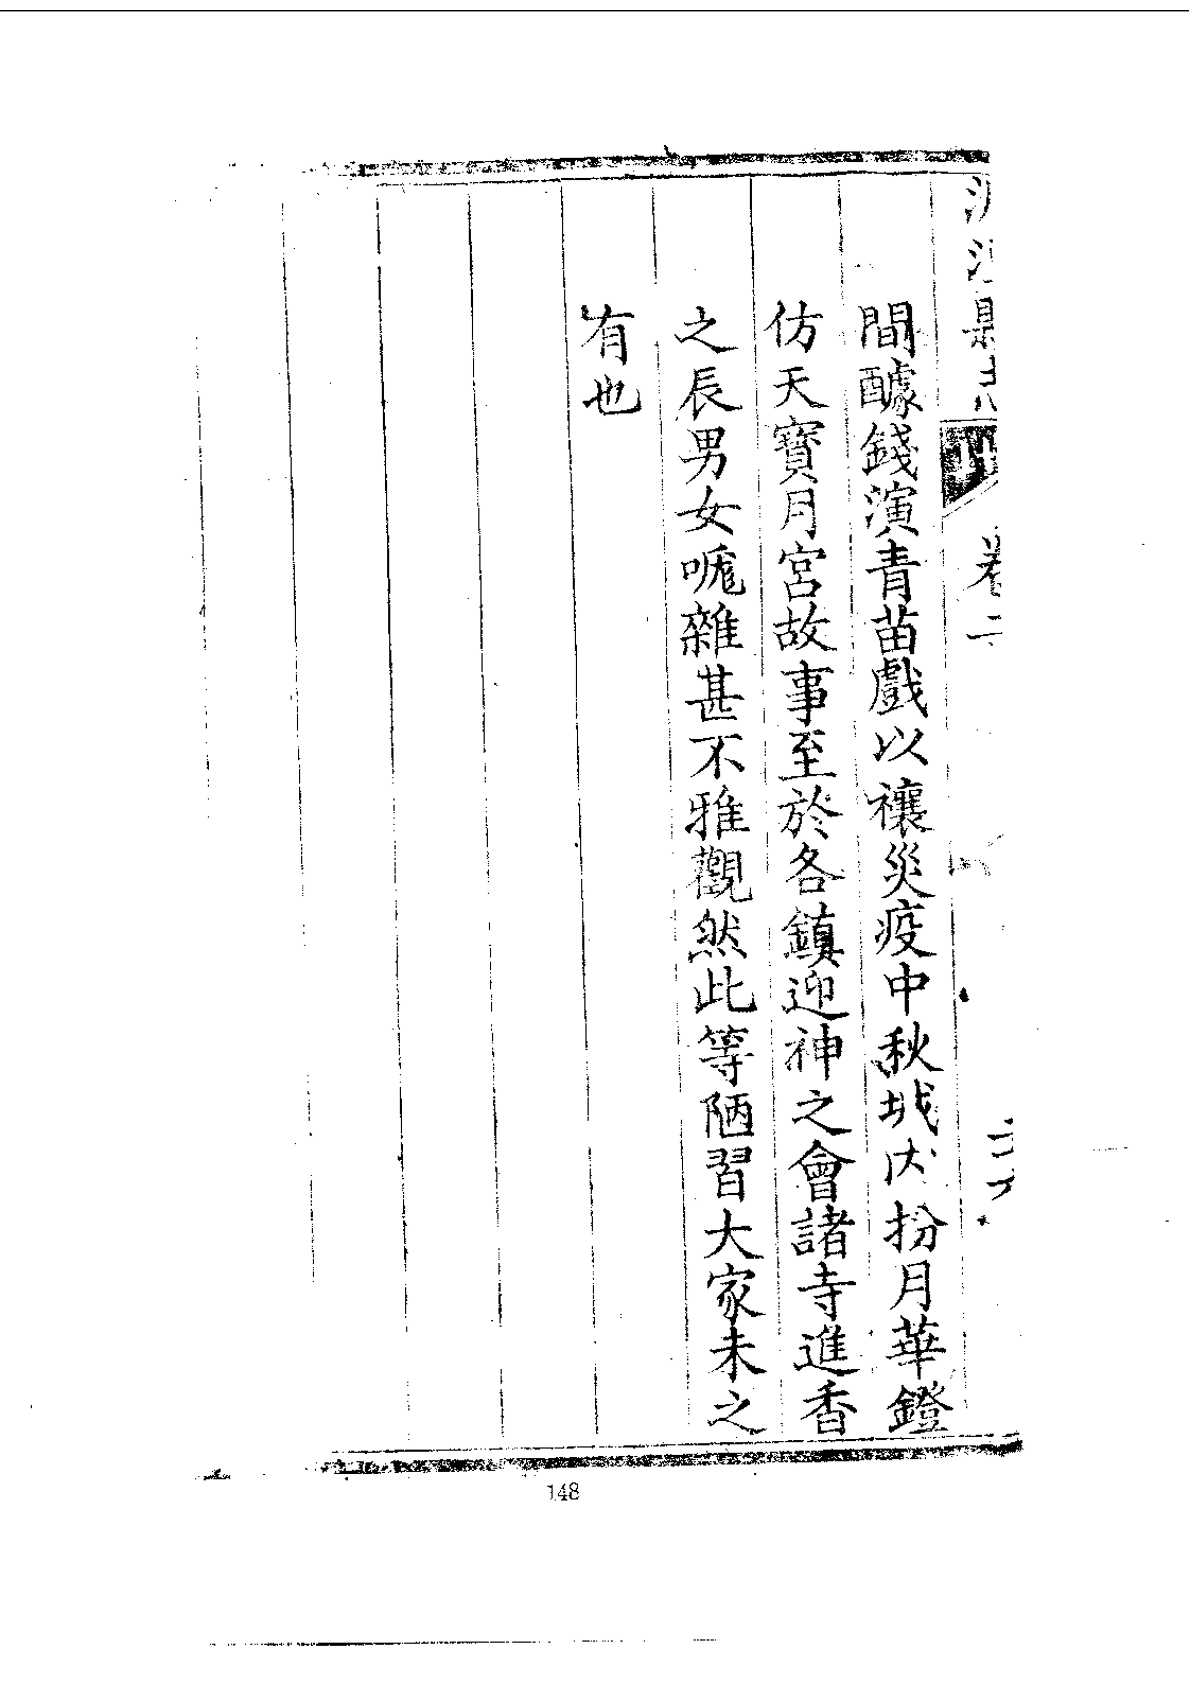 縣志 卷二
間醵錢演青苗戲以禳災疫中秋城内扮月華鐙
仿天寶月宮故事至於各鎮迎神之會諸寺進香
之辰男女哤雜甚不雅觀然此等陋習大家未之
有也
148